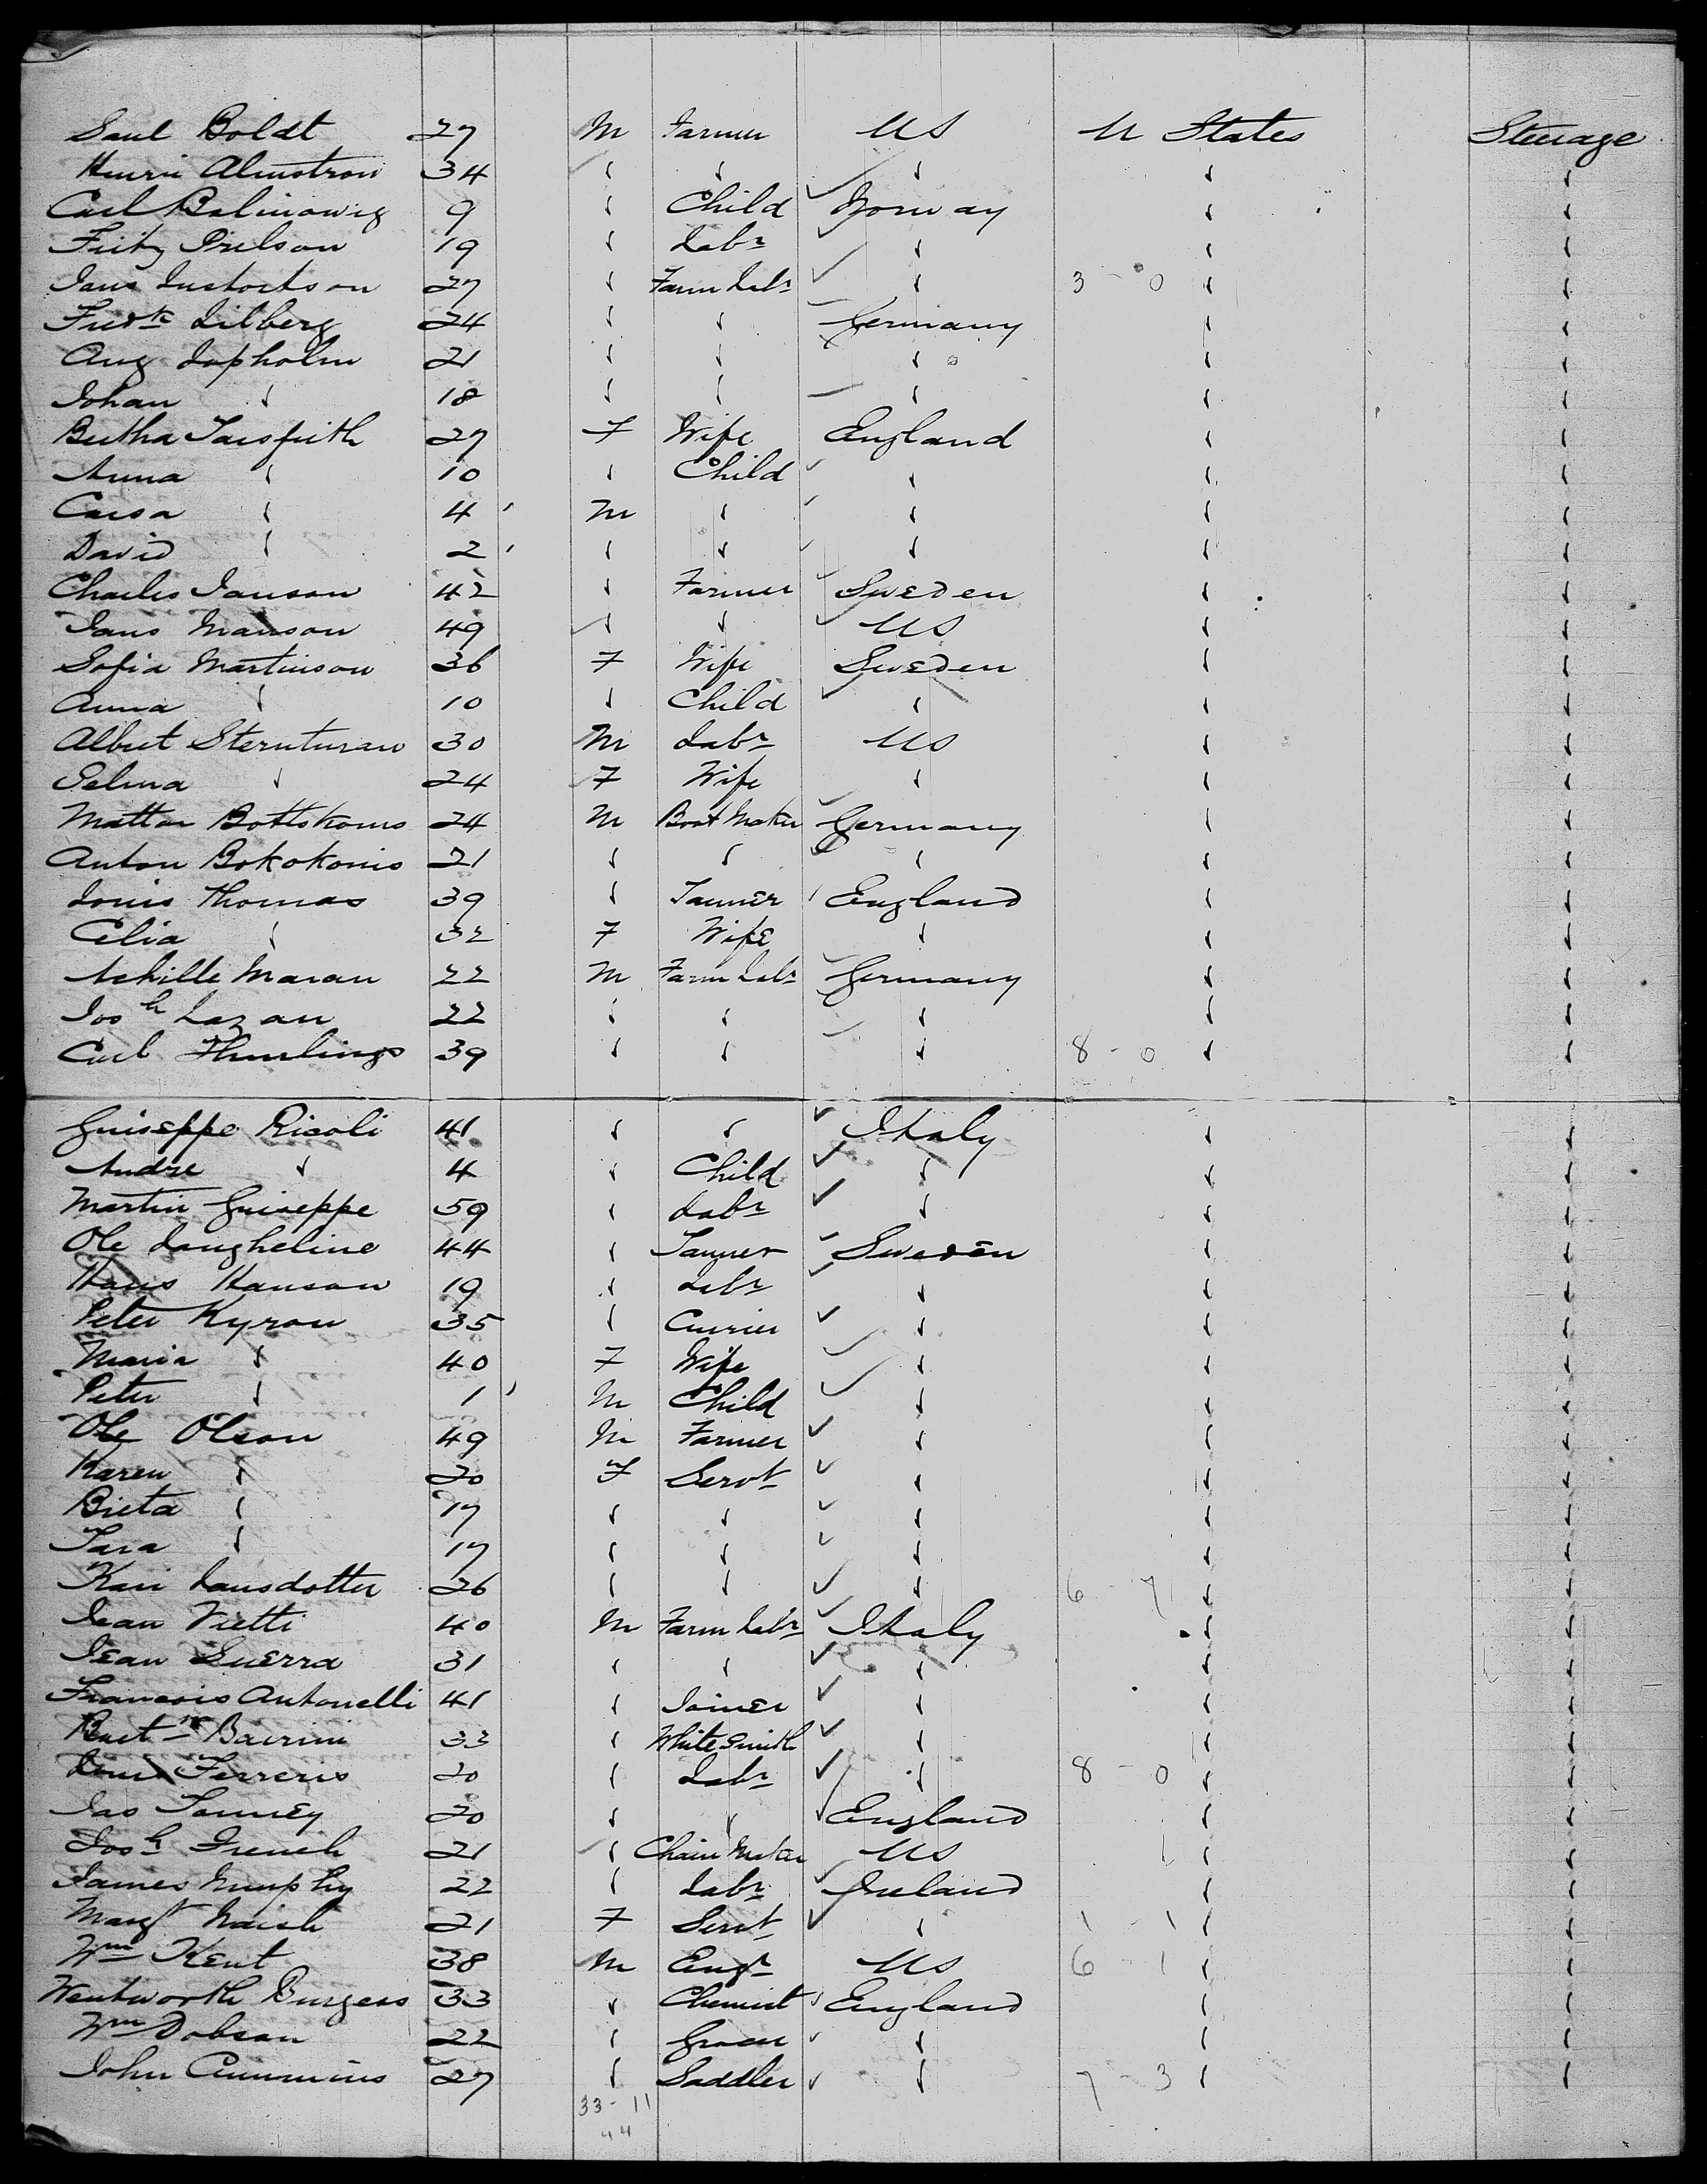 Saul Boldt 27 M Farmer US U States Steerage
Henric Almstron 34 " " " " "
Carl Balinowig 9 " Child Norway " "
Fritz Nilson 19 " Labr " " "
Jans 27 " Farm Labr " 3 - 0 " "
Fredk Lilberg 24 " " Germany " "
Aug Lopholm 21 " " " " "
Johan " 18 " " " " "
Bertha 27 F Wife England " "
Anna " 10 " Child " " "
Carsa " 4 M " " " "
David " 2 " " " " "
Charles Janson 42 " Farmer Sweden " "
Jans Manson 49 " " US " "
Sofia Martinson 36 F Wife Sweden " "
Anna " 10 " Child " " "
Albert Sternturan 30 M Labr US " "
Selma " 24 F Wife " " "
Mattar Bottskoms 24 M Boot Maker Germany " "
Anton Bokokonis 21 " " " " "
Louis Thomas 39 " Tanner England " "
Celia " 32 F Wife " " "
Achille Maran 22 M Farm Labr Germany " "
Josh Lazan 22 " " " " "
Carl Thurlings 39 " " " 8 - 0 " "
Guiseppe Ricoli 41 " " Italy " "
Andre " 4 " Child " " "
Martin Guiseppe 59 " Labr " " "
Ole Langheline 44 " Tanner Sweden " "
Hans Hanson 19 " Labr " " "
Peter Kyron 35 " Currier " " "
Maria " 40 F Wife " " "
Peter " 1 M Child " " "
Ole Olson 49 M Farmer " " "
Karen " 20 F Servt " " "
Brita " 17 " " " " "
Sara " 17 " " " " "
Kari Larsdotter 26 " " " 6 - 7 " "
Jean Vietti 40 M Farm Labr Italy " "
Jean Guerra 31 " " " " "
Francois Antonelli 41 " Joiner " " "
Bairini 33 " White Smith " " "
Louis Ferreris 20 " Labr " 8 - 0 " "
Jas Tonney 20 " " England " "
Josh French 21 " Chain Maker US 1 " "
James Murphy 22 " Labr Ireland " "
Margt Naish 21 F Servt " 1 - 1 " "
Wm Kent 38 M Engr US 6 - 1 " "
Wentworth Burgess 33 " Chemist England " "
Wm Dobson 22 " Grocer " " "
John Cummins 27 " Saddler " 7 - 3 " "
33 - 11
44